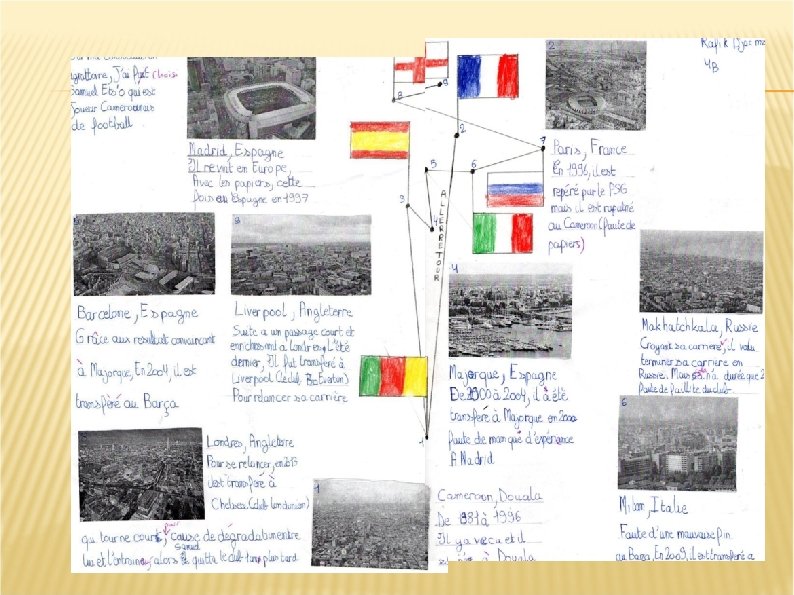 Rafik
4B
J'ai fait choisi
Samuel Eto'o qui est
Joueur Camerounais
de football
Madrid, Espagne
Il revint en Europe,
Avec les papiers, cette
fois en Espagne en 1997
2
Paris, France
En 1996, il est
repéré par le PSG
mais il est rapatrié
au Cameroun (faute de
papiers)
8
9
2
7
5
6
3
4
1
ALLER RETOUR
Barcelone, Espagne
Grâce aux resultat convaincant
à Majorque, En 2004, il est
transféré au Barça
Liverpool, Angleterre
Suite a un passage court et
a Londres, L'été
dernier, Il fut transféré à
Liverpool (club: Everton)
Pour relancer sa carrière
4
Majorque, Espagne
De 2000 à 2004, il a été
transferé à Majorque en 2000
faute de manque d'expérience
A Madrid
Makhatchkala, Russie
Croyant sa carriere, il voulu
terminer sa carrière en
Russie. Mais sa n'a durée que 2
faute de faillite du club.
Londres, Angleterre
Pour se relancer, en 2013
il est transféré à
Chelsea (club londonien)
qui tourne court, cause de dégradation entre
lui et l'entraineur, alors Samuel quitte le club plus tard
1
Cameroun, Douala
De 1981 à 1996
Il y a vécu et il
est né à Douala
6
Milan, Italie
Faute d'une mauvaise fin
au Barça, En 2009, il est transféré a